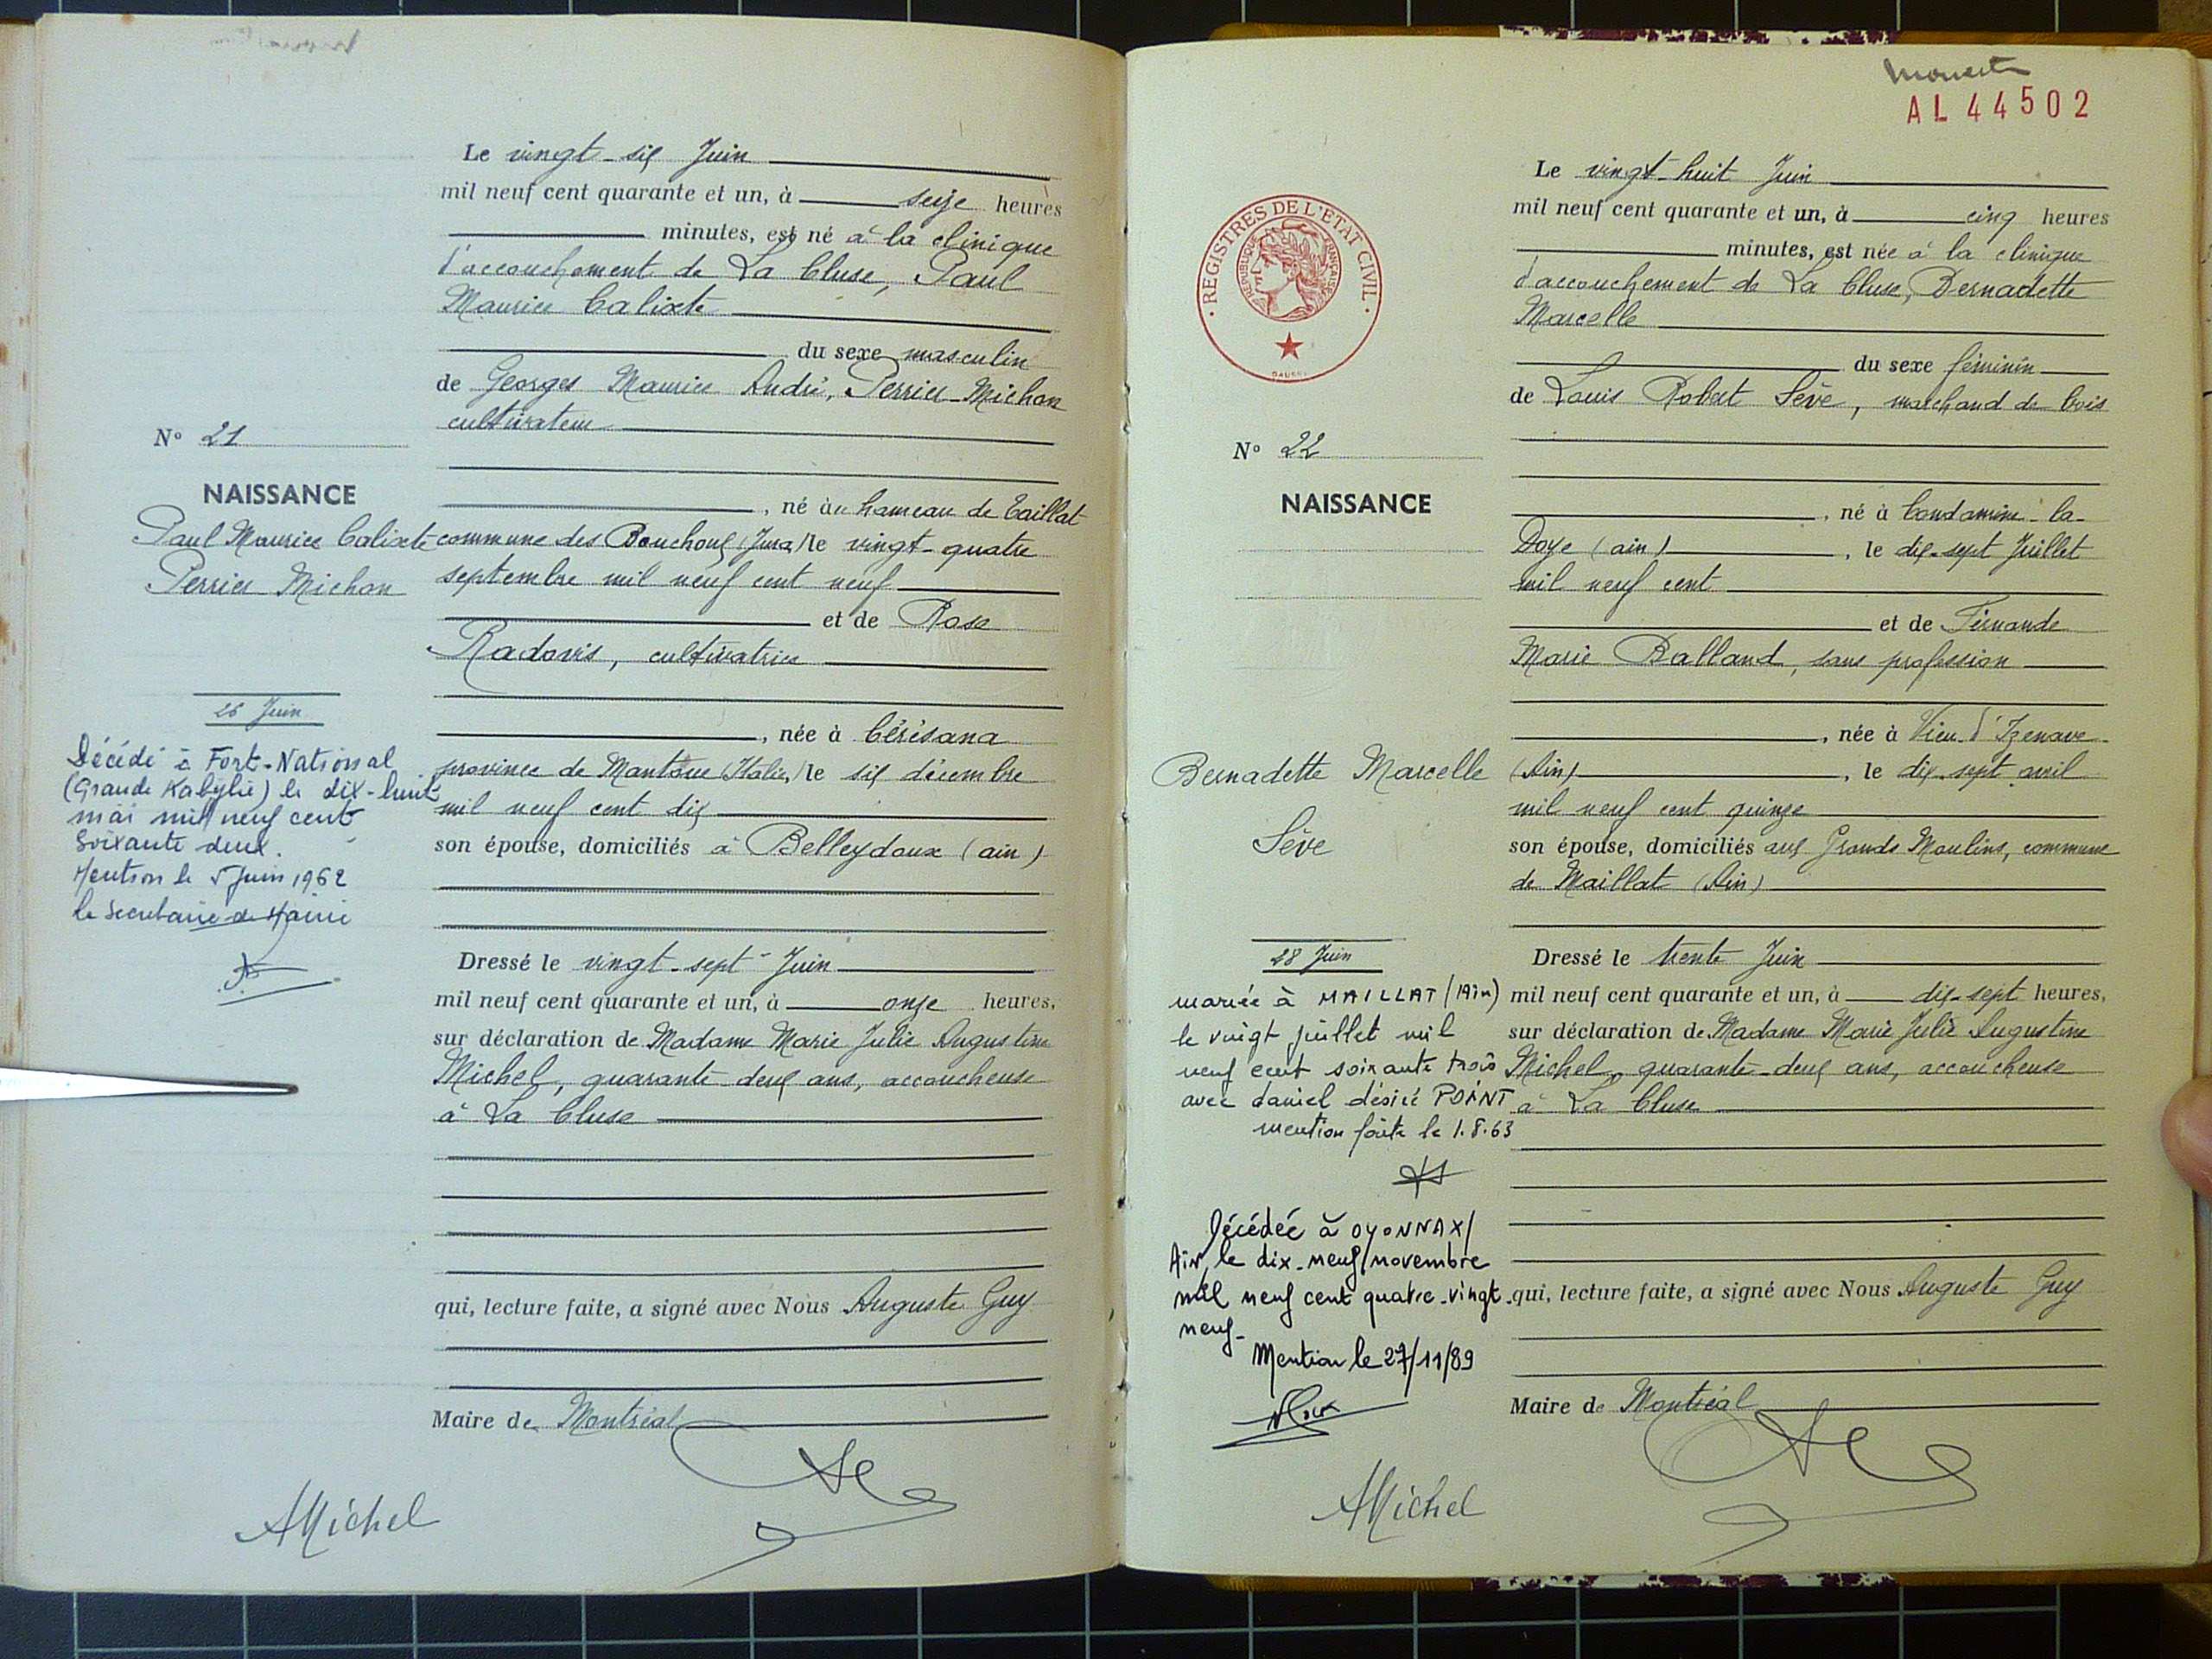 Le vingt-six Juin
mil neuf cent quarante et un, à seize heures
minutes, est né à la clinique
d'accouchement de La Cluse, Paul
Maurice Calixte
du sexe masculin
de Georges Maurice André, Perrier-Michon
cultivateur
N° 21
NAISSANCE
Paul Maurice Calixte
Perrier Michon
, né au hameau de Taillat
commune des Bouchoux (Jura) le vingt-quatre
septembre mil neuf cent neuf
et de Rose
Radovis, cultivatrice
, née à Cérésana
province de Mantoue (Italie) le six décembre
mil neuf cent dix
son épouse, domiciliés à Belleydoux (ain)
26 Juin
Décédé à Fort-National
(Grande Kabylie) le dix-huit
mai mil neuf cent
soixante deux.
Mention le 5 Juin 1962
le Secrétaire de Mairie
Dressé le vingt-sept Juin
mil neuf cent quarante et un, à onze heures,
sur déclaration de Madame Marie Julie Augustine
Michel, quarante-deux ans, accoucheuse
à La Cluse
qui, lecture faite, a signé avec Nous Auguste Guy
Maire de Montréal
AMichel
Monert
AL 44502
REGISTRES DE L'ETAT CIVIL
REPUBLIQUE FRANÇAISE
Le vingt-huit Juin
mil neuf cent quarante et un, à cinq heures
minutes, est née à la clinique
d'accouchement de La Cluse, Bernadette
Marcelle
du sexe féminin
de Louis Robert Sève, marchand de bois
N° 22
NAISSANCE
Bernadette Marcelle
Sève
, né à Condamine-la-
Doye (ain), le dix-sept Juillet
mil neuf cent
et de Fernande
Marie Balland, sans profession
, née à Vieu-d'Izenave
(Ain), le dix-sept avril
mil neuf cent quinze
son épouse, domiciliés aux Grands Moulins, commune
de Maillat (Ain)
28 Juin
mariée à MAILLAT (Ain)
le vingt juillet mil
neuf cent soixante trois
avec daniel désiré POINT
mention faite le 1.8.63
Décédée à OYONNAX/
Ain, le dix-neuf novembre
mil neuf cent quatre-vingt-
neuf-
Mention le 27/11/89
Dressé le trente Juin
mil neuf cent quarante et un, à dix-sept heures,
sur déclaration de Madame Marie Julie Augustine
Michel, quarante-deux ans, accoucheuse
à La Cluse
qui, lecture faite, a signé avec Nous Auguste Guy
Maire de Montréal
AMichel